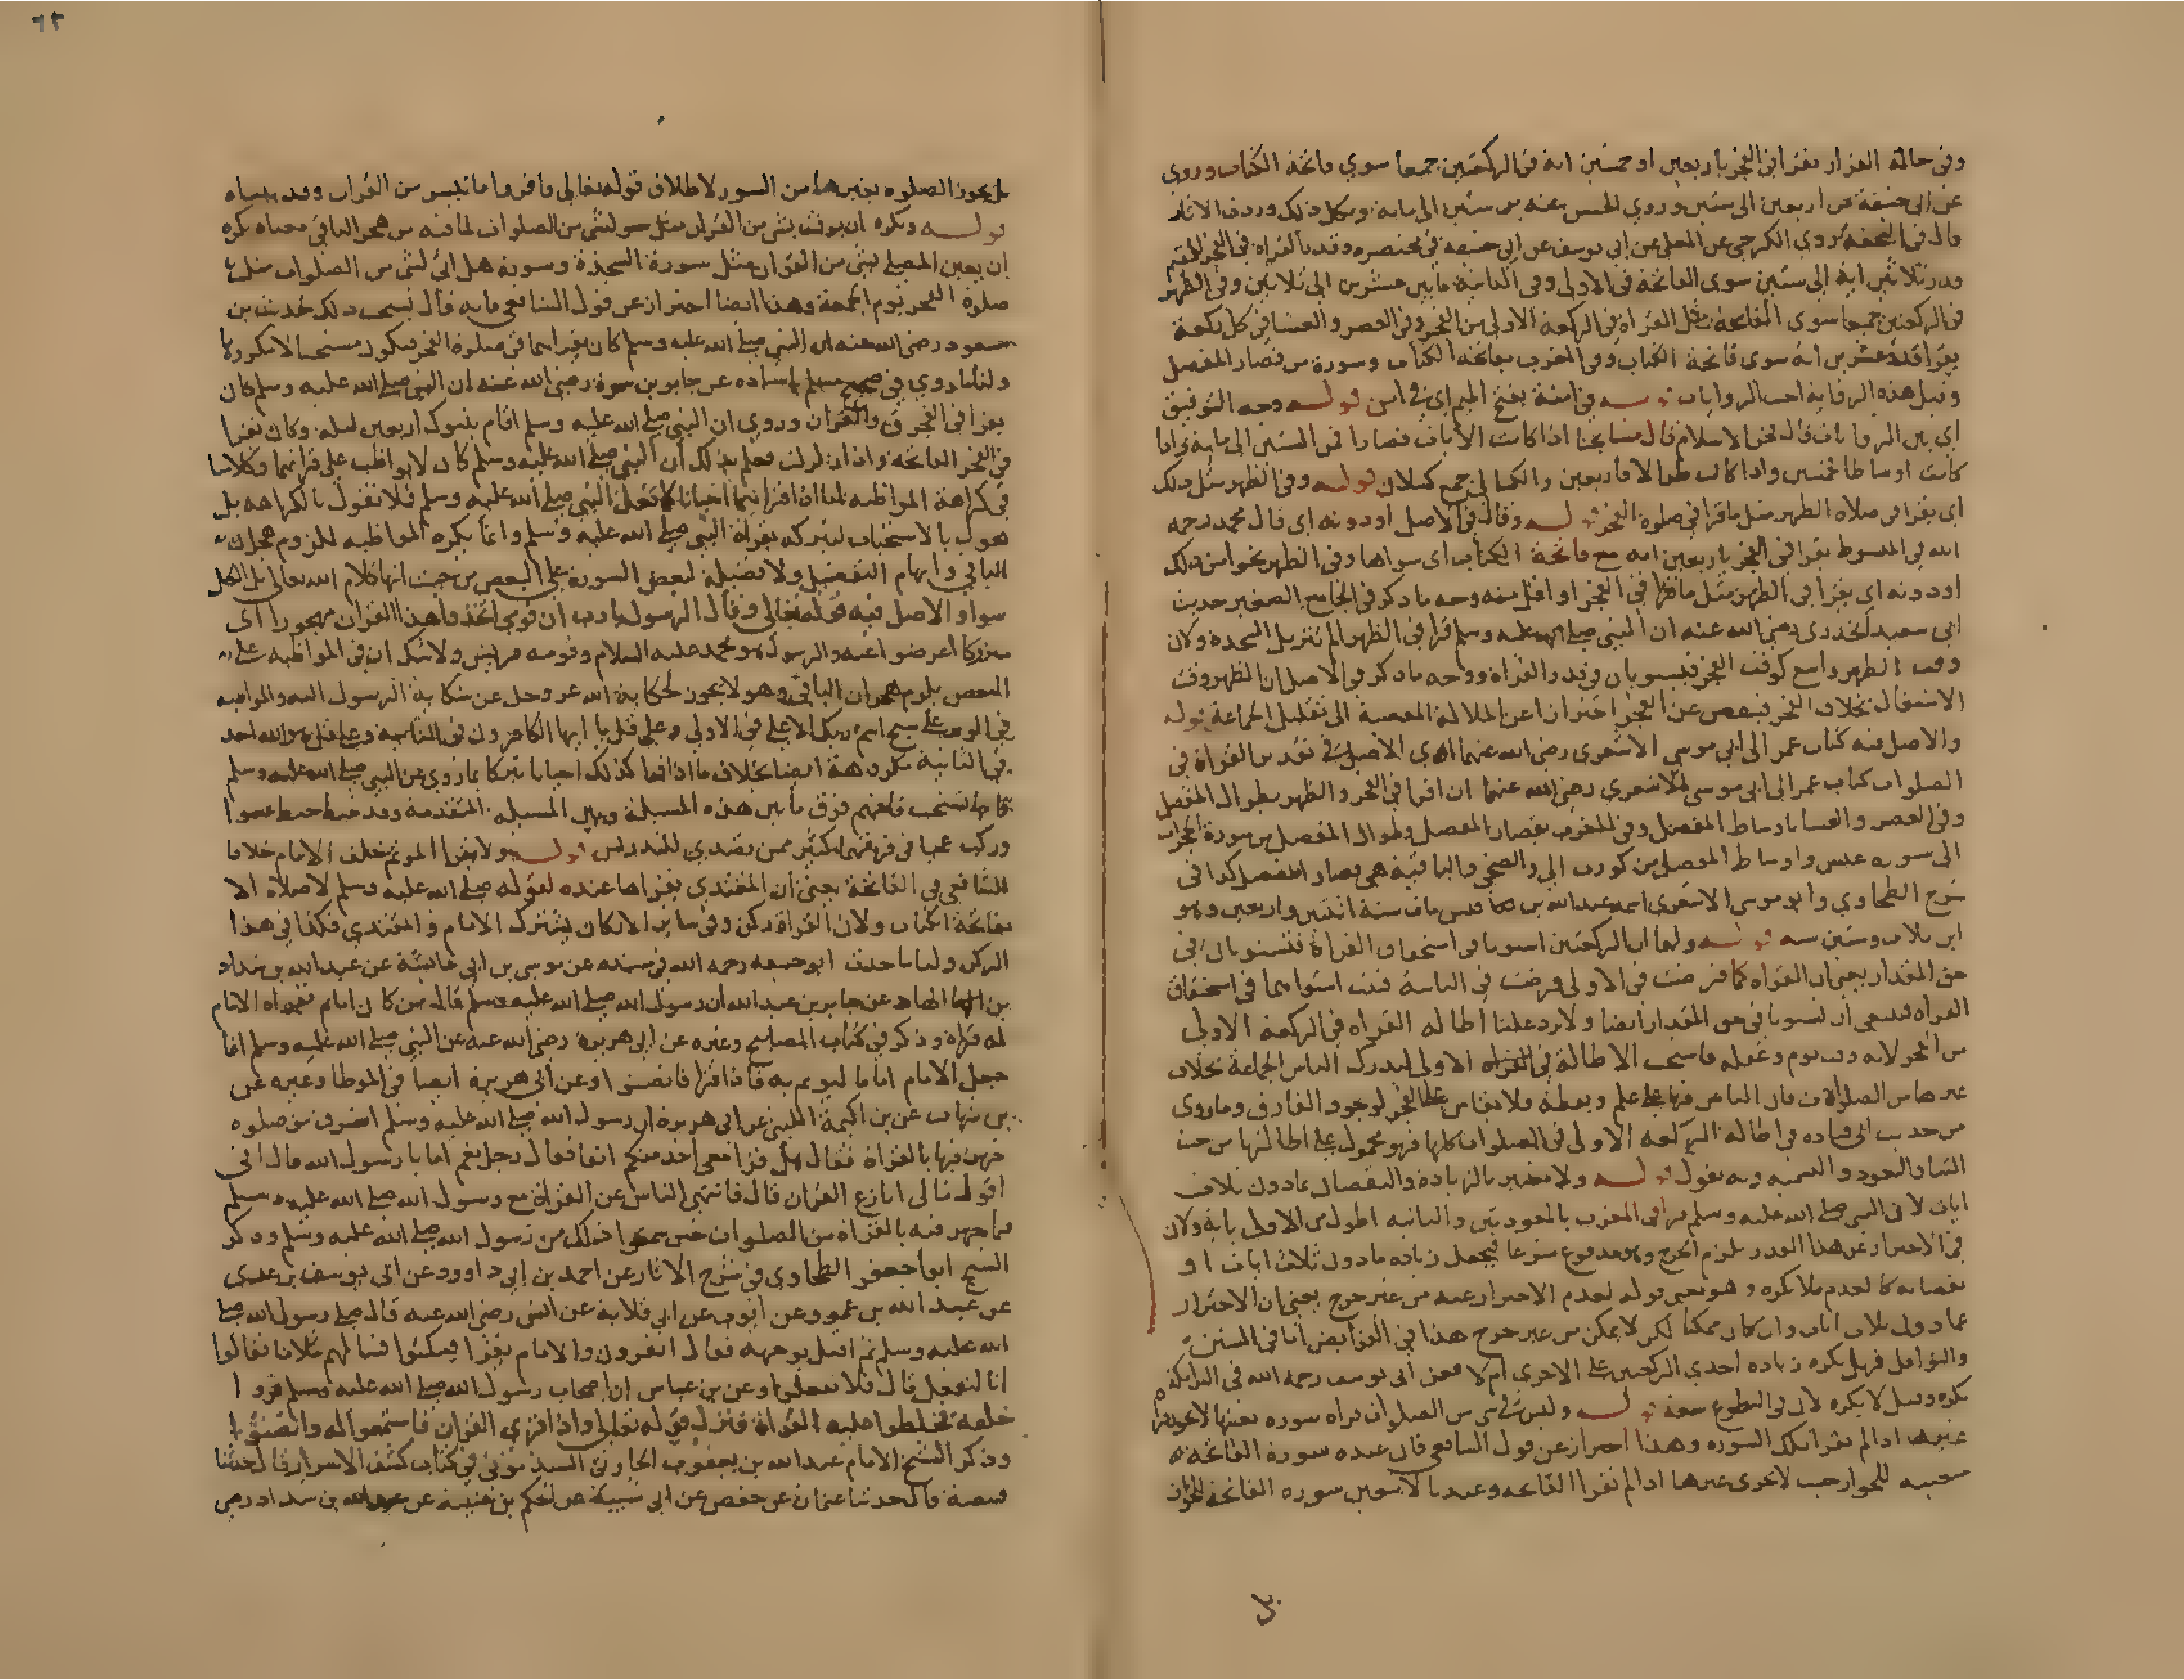 وفي حالة القرار يقرا في الفجر باربعين او خمسين اية في الركعتين جميعا سوي فاتحة الكتاب وروي
عن ابي حنيفة من اربعين الى ستين وروي الحسن عنه من ستين الى ماية وبكل ذلك وردت الاثار
قال في التحفة روي الكرخي عن المعلى عن ابي يوسف عن ابي حنيفة في مختصره وقدر القراة في الفجر للمقيم
قدر ثلاثين اية الى ستين سوي الفاتحة في الاولى وفي الثانية ما بين عشرين الى ثلاثين وفي الظهر
في الركعتين جميعا سوى الفاتحة مثل القراة في الركعة الاولى من الفجر وفي العصر والعشا في كل ركعة
يقرا قدر عشرين اية سوى فاتحة الكتاب وفي المغرب بفاتحة الكتاب وسورة من قصار المفصل
وقيل هذه الرواية احب الروايات قوله في امنة بفتح الميم اي في امن قوله وجه التوفيق
اي بين الروايات قال فخر الاسلام قال مشايخنا اذا كانت الايات قصارا فمن الستين الى ماية واذا
كانت اوساطا فخمسين واذا كانت طوالا فاربعين والكسالى جمع كسلان قوله وفي الظهر مثل ذلك
اي يقرا في صلاة الظهر مثل ما قرا في صلوة الفجر قوله وقال في الاصل او دونه اي قال محمد رحمه
الله في المبسوط يقرا في الفجر باربعين اية مع فاتحة الكتاب اى سواها وفي الظهر نحوا من ذلك
او دونه اي يقرا في الظهر مثل ما قرا في الفجر او اقل منه وجه ما ذكر في الجامع الصغير حديث
ابي سعيد الخدري رضي الله عنه ان النبي صلى الله عليه وسلم قرا في الظهر الم تنزيل السجدة ولان
وقت الظهر واسع كوقت الفجر فيستويان في قدر القراة ووجه ما ذكر في الاصل ان الظهر وقت
الاشتغال بخلاف الفجر فينقص عن الفجر احترازا عن الملالة المفضية الى تقليل الجماعة قوله
والاصل فيه كتاب عمر الى ابي موسى الاشعري رضي الله عنهما اي الاصل في تقدير القراة في
الصلوات كتاب عمر الى ابي موسى الاشعري رضي الله عنهما ان اقرا في الفجر والظهر بطوال المفصل
وفي العصر والعشا باوساط المفصل وفي المغرب بقصار المفصل وطوال المفصل من سورة الحجرات
الى سورة عبس واوساط المفصل من كورت الى والضحى والباقية هي قصار المفصل كذا في
شرح الطحاوي وابو موسى الاشعري اسمه عبد الله بن قيس مات سنة اثنتين واربعين وهو
ابن ثلاث وستين سنه قوله ولهما ان الركعتين استويا في استحقاق القراة فتستويان في
حق المقدار يعني ان القراة كما فرضت في الاولى فرضت في الثانية فثبت استواهما في استحقاق
القراة فينبغي ان تستويا في حق المقدار ايضا ولا يرد علينا اطالة القراة في الركعة الاولى
من الفجر لانه وقت نوم وغفلة فاستحب الاطالة في الاولى ليدرك الناس الجماعة بخلاف
غيرها من الصلوات فان الناس فيها على علم ويقظة فلا يقاس على الفجر لوجود الفارق وما روي
من حديث ابي قتادة في اطالة الركعة الاولى في الصلوات كلها فهو محمول على اطالتها من حيث
الثنا والتعوذ والتسمية وبه نقول قوله ولا معتبر بالزيادة والنقصان بما دون ثلاث
ايات لان النبي صلى الله عليه وسلم قرا في المغرب بالمعوذتين والثانية اطول من الاولى باية ولان
في الاحتراز عن هذا القدر يلزم الحرج وهو مدفوع شرعا فيجعل زيادة ما دون ثلاث ايات او
نقصانه كالعدم فلا يكره وهو معنى قوله لعدم الاحتراز عنه من غير حرج يعني ان الاحتراز
عما دون ثلاث ايات وان كان ممكنا لكن لا يمكن من غير حرج هذا في الفرايض اما في السنن
والنوافل فهل يكره زيادة احدى الركعتين على الاخرى ام لا فعن ابي يوسف رحمه الله في
يكره وقيل لا يكره لان في التطوع سعة قوله وليس في شي من الصلوات قراة سورة بعينها لا يجوز
غيرها اذا لم يقرا تلك السورة وهذا احتراز عن قول الشافعي فان عنده سورة الفاتحة
متعينة للجواز حيث لا يجزى غيرها اذا لم يقرا الفاتحة وعندنا لا تتعين سورة الفاتحة للجواز
بل
بل يجوز الصلوة بغيرها من السور لاطلاق قوله تعالى فاقروا ما تيسر من القران وقد بيناه
قوله ويكره ان يوقت بشي من القران مثل سو لشي من الصلوات لما فيه من هجر الباقي معناه يكره
ان يعين المصلي لشي من القران مثل سورة السجدة وسورة هل اتى لشي من الصلوات مثل
صلوة الفجر يوم الجمعة وهذا ايضا احتراز عن قول الشافعي فانه قال يستحب ذلك لحديث بن
مسعود رضي الله عنه ان النبي صلى الله عليه وسلم كان يقراهما في صلوة الفجر فيكون مستحبا لا مكروها
ولنا ما روي في صحيح مسلم باسناده عن جابر بن سمرة رضي الله عنه ان النبي صلى الله عليه وسلم كان
يقرا في الفجر ق والقران وروي ان النبي صلى الله عليه وسلم اقام بتبوك اربعين ليلة وكان يقرا
في الفجر الفاتحة واذا زلزلت فعلم بذلك ان النبي صلى الله عليه وسلم كان لا يواظب على قراتهما وكلامنا
في كراهة المواظبة اما اذا قراهما احيانا كما فعل النبي صلى الله عليه وسلم فلا نقول بالكراهة بل
نقول بالاستحباب ليتبركه بقراة النبي صلى الله عليه وسلم وانما يكره المواظبة للزوم هجران
الباقي وايهام التفضيل ولا فضيلة لبعض السورة على البعض من حيث انها كلام الله تعالى بل الكل
سواو الاصل فيه قوله تعالى وقال الرسول يا رب ان قومي اتخذوا هذا القران مهجورا اى
متروكا اعرضوا عنه والرسول هو محمد عليه السلام وقومه قريش ولا شك ان في المواظبة على
البعض يلزم هجران الباقي وهو لا يجوز لحكاية الله عز وجل عن شكاية الرسول اليه والمواظبة
في الوتر على سبح اسم ربك الاعلى في الاولى وعلى قل يا ايها الكافرون في الثانية وعلى قل هو الله احد
في الثانية مكروهة ايضا بخلاف ما اذا قرا كذلك احيانا تبركا بما روي عن النبي صلى الله عليه وسلم
فانه يستحب فافهم فرق ما بين هذه المسيلة وبين المسيلة المتقدمة وقد خبط خبط عشوا
وركب عميا في فرقهما كثير ممن تصدى للتدريس قوله ولا يقرا الموتم خلف الامام خلافا
للشافعي في الفاتحة يعني ان المقتدي يقراها عنده لقوله صلى الله عليه وسلم لا صلاة الا
بفاتحة الكتاب ولان القراة ركن وفي ساير الاركان يشترك الامام والمقتدي فكذا في هذا
الركن ولنا ما حدث ابو حنيفة رحمه الله في مسنده عن موسى بن ابي عائشة عن عبد الله بن شداد
بن الهاد عن جابر بن عبد الله ان رسول الله صلى الله عليه وسلم قال من كان له امام فقراة الامام
له قراة وذكر في كتاب المصابيح وغيره عن ابي هريرة رضي الله عنه عن النبي صلى الله عليه وسلم انما
جعل الامام اماما ليوتم به فاذا قرا فانصتوا وعن ابي هريرة ايضا في الموطا وغيره عن
بن شهاب عن بن اكيمة الليثي عن ابي هريرة ان رسول الله صلى الله عليه وسلم انصرف من صلوة
جهر فيها بالقراة فقال هل قرا معي احد منكم انفا فقال رجل نعم انا يا رسول الله قال اني
اقول مالى انازع القران قال فانتهى الناس عن القراة مع رسول الله صلى الله عليه وسلم
فيما جهر فيه بالقراة من الصلوات حين سمعوا ذلك من رسول الله صلى الله عليه وسلم وذكر
الشيخ ابو جعفر الطحاوي في شرح الاثار عن احمد بن ابي داوود عن ابي يوسف بن عدي
عن عبيد الله بن عمرو عن ايوب عن ابي قلابة عن انس رضي الله عنه قال صلى رسول الله صلى
الله عليه وسلم ثم اقبل بوجهه فقال اتقرون والامام يقرا فسكتوا فسالهم ثلاثا فقالوا
انا لنفعل قال فلا تفعلوا وعن بن عباس ان اصحاب رسول الله صلى الله عليه وسلم قروا
خلفه فخلطوا عليه القراة فنزل قوله تعالى واذا قري القران فاستمعوا له وانصتوا
وذكر الشيخ الامام عبد الله بن يعقوب الحارثي السبذموني في كتاب كشف الاسرار قال حدثنا
قال حدثنا عثمان عن حفص عن ابي شيبة عن الحكم بن عتيبة عن عبد الله بن شداد رضي